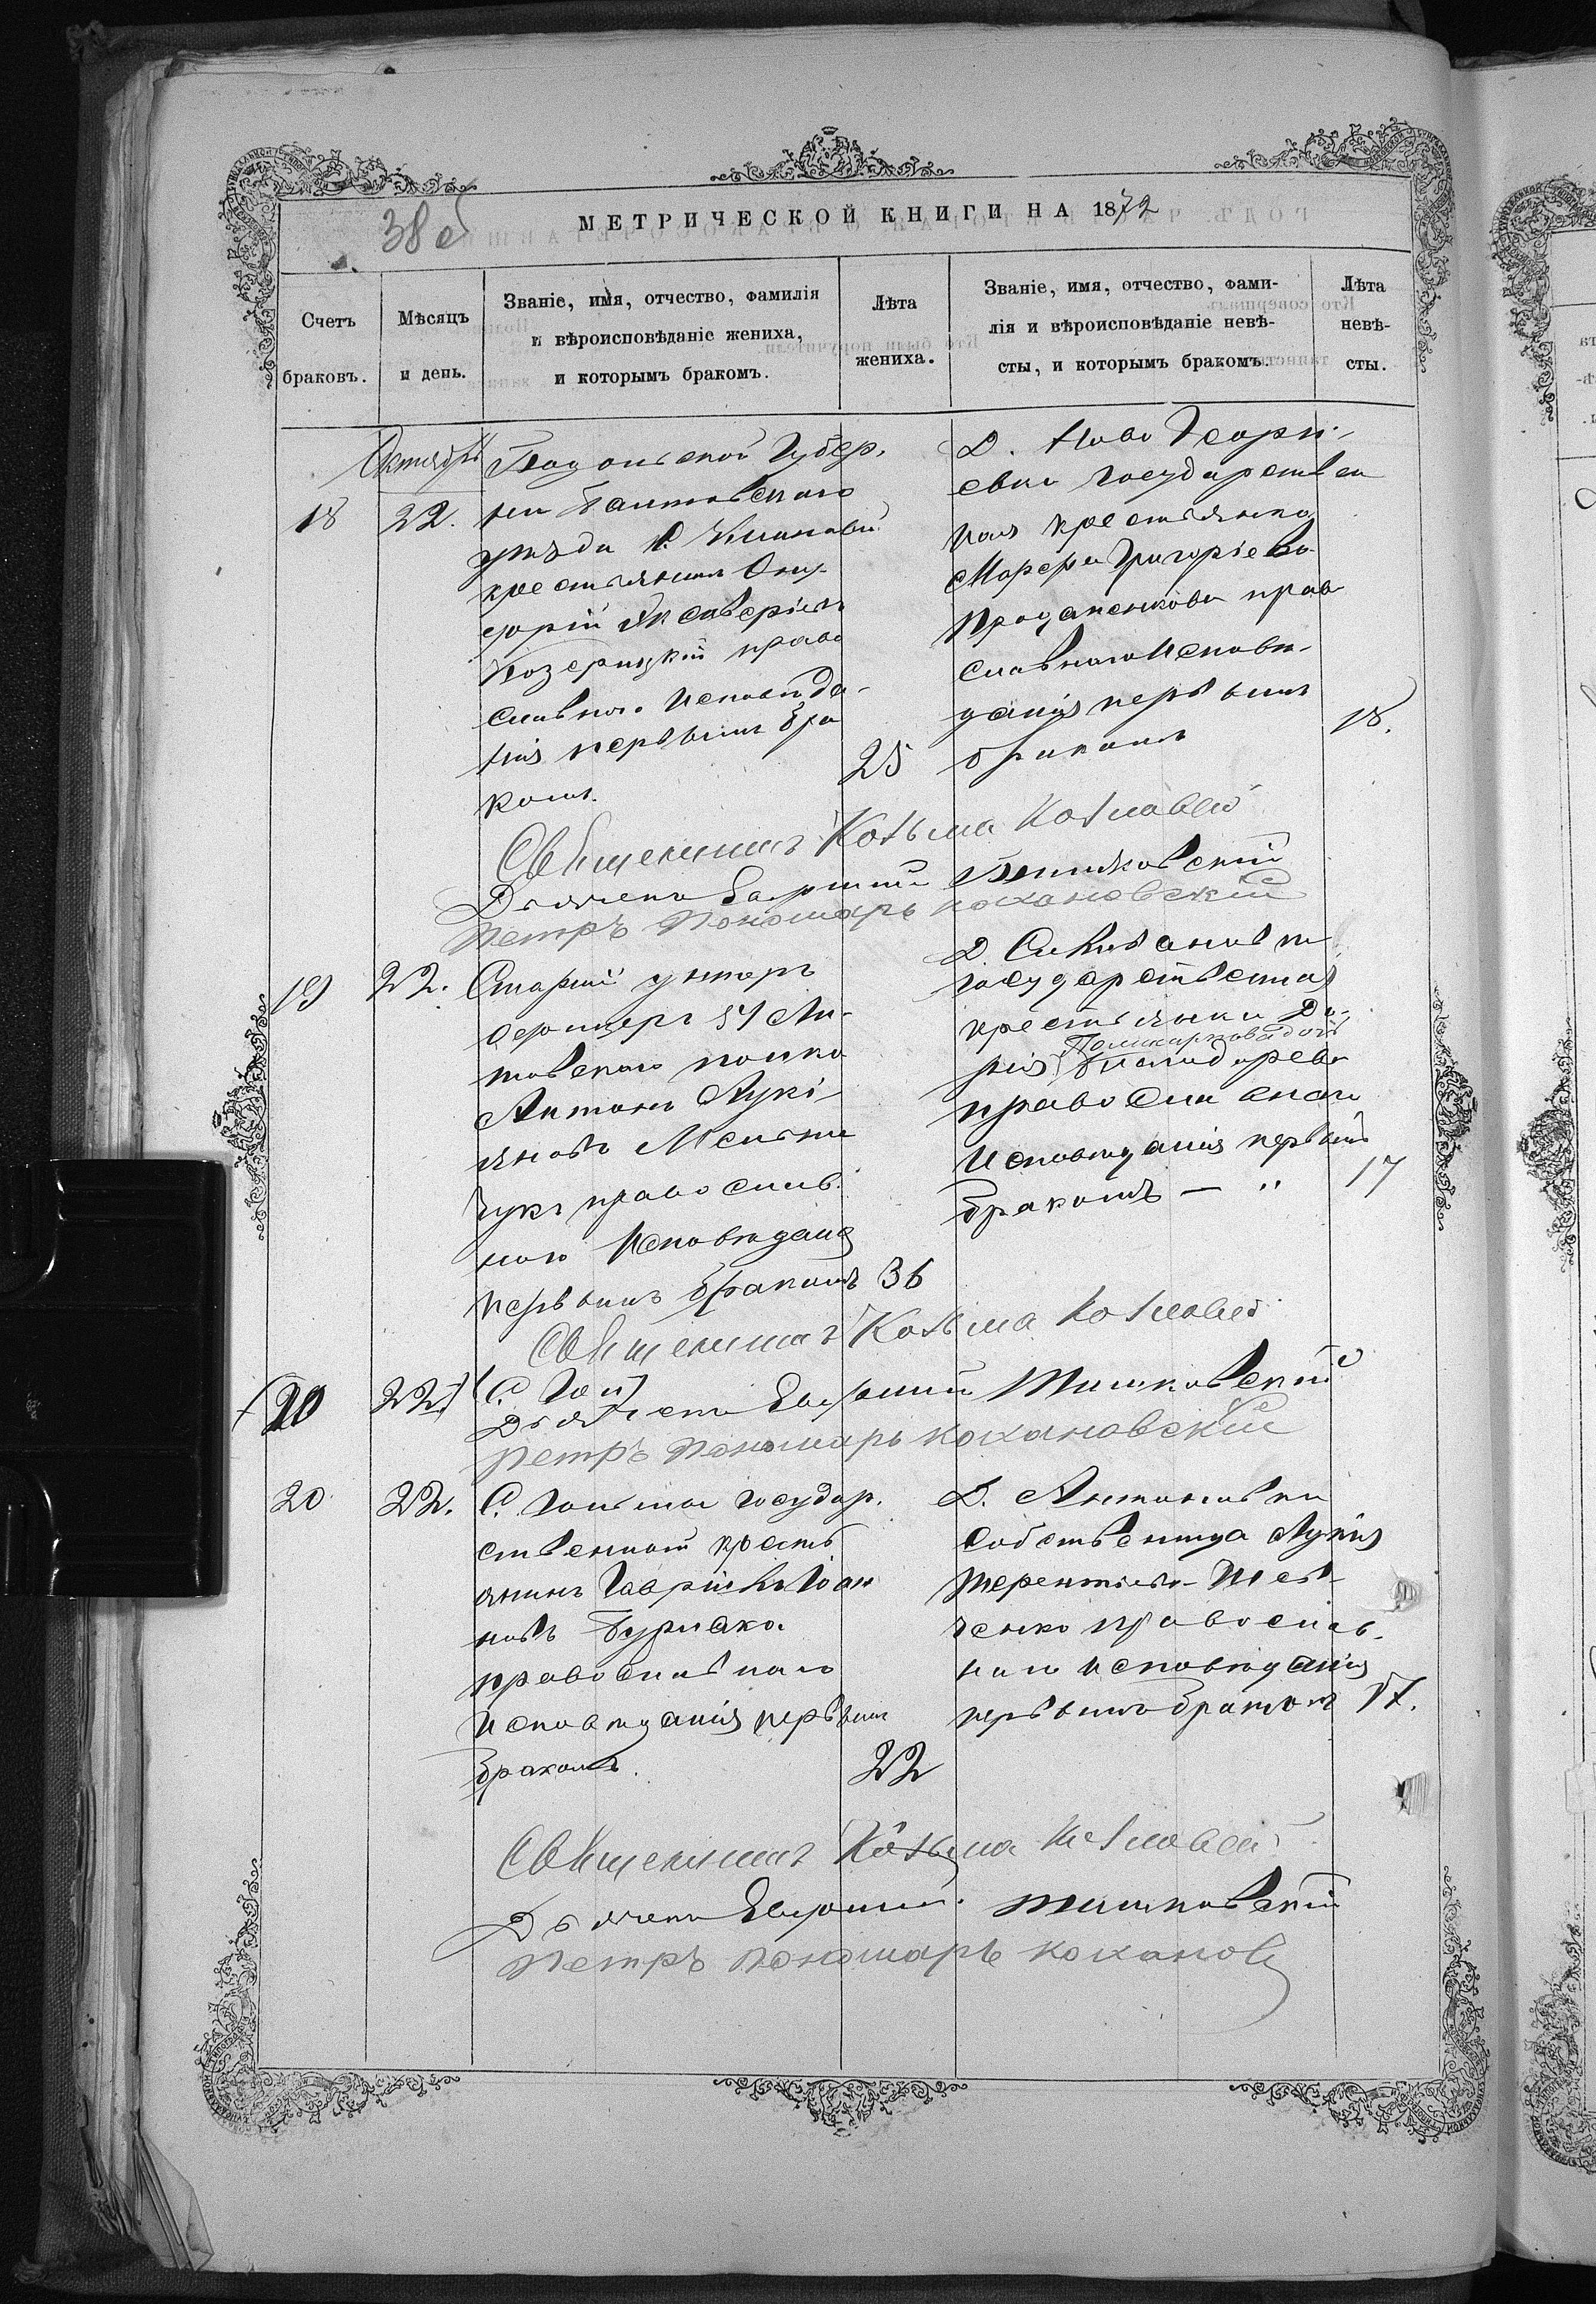 МЕТРИЧЕСКОЙ КНИГИ НА 1872
38 об
Счетъ браковъ.
Мѣсяцъ и день.
Званіе, имя, отчество, фамилія
и вѣроисповѣданіе жениха,
и которымъ бракомъ.
Лѣта жениха.
Званіе, имя, отчество, фами-
лія и вѣроисповѣданіе невѣ-
сты, и которымъ бракомъ.
Лѣта невѣ-
сты.
Октября
18
22.
Подольской Губер.
ніи Балтовского
уѣзда с.
крестьянинъ Ону
фрій
Козерицкій право
славного исповѣда-
нія первымъ бра
комъ.
25
Д. Ново Георгі-
евки государствен
ная крестьянка
Марфа Григоріева
православного исповѣ-
данія первымъ
бракомъ
18.
Священникъ Козьма
Дьячекъ Евфимій Тишковскій
Петръ Пономарь Кохановскій
19
22.
Старшій унтеръ
офицеръ 54
полка
Антонъ Лукі
яновъ Мельни
чукъ православ.
ного исповѣданія
первымъ бракомъ
36
Д.
государственная
крестьянка Да-
рія Поликарпова дочь
православного
исповѣданія первымъ
бракомъ — "
17
Священникъ Козьма
20
22.
С. Гол
Дьячекъ Евфимій Тишковскій
Петръ Пономарь Кохановскій
20
22.
С. Гольма государ.
ственной кресть
янинъ Гавріилъ Іоан
новъ Бурлака
православного
исповѣданія первымъ
бракомъ.
22
Д. Антоновки
собственица Лукія
Терентіева Шев-
ченко православ.
ного исповѣданія
первымъ бракомъ
17.
Священникъ Козьма
Дьячекъ Евфимій Тишковскій
Петръ Пономарь Коханов